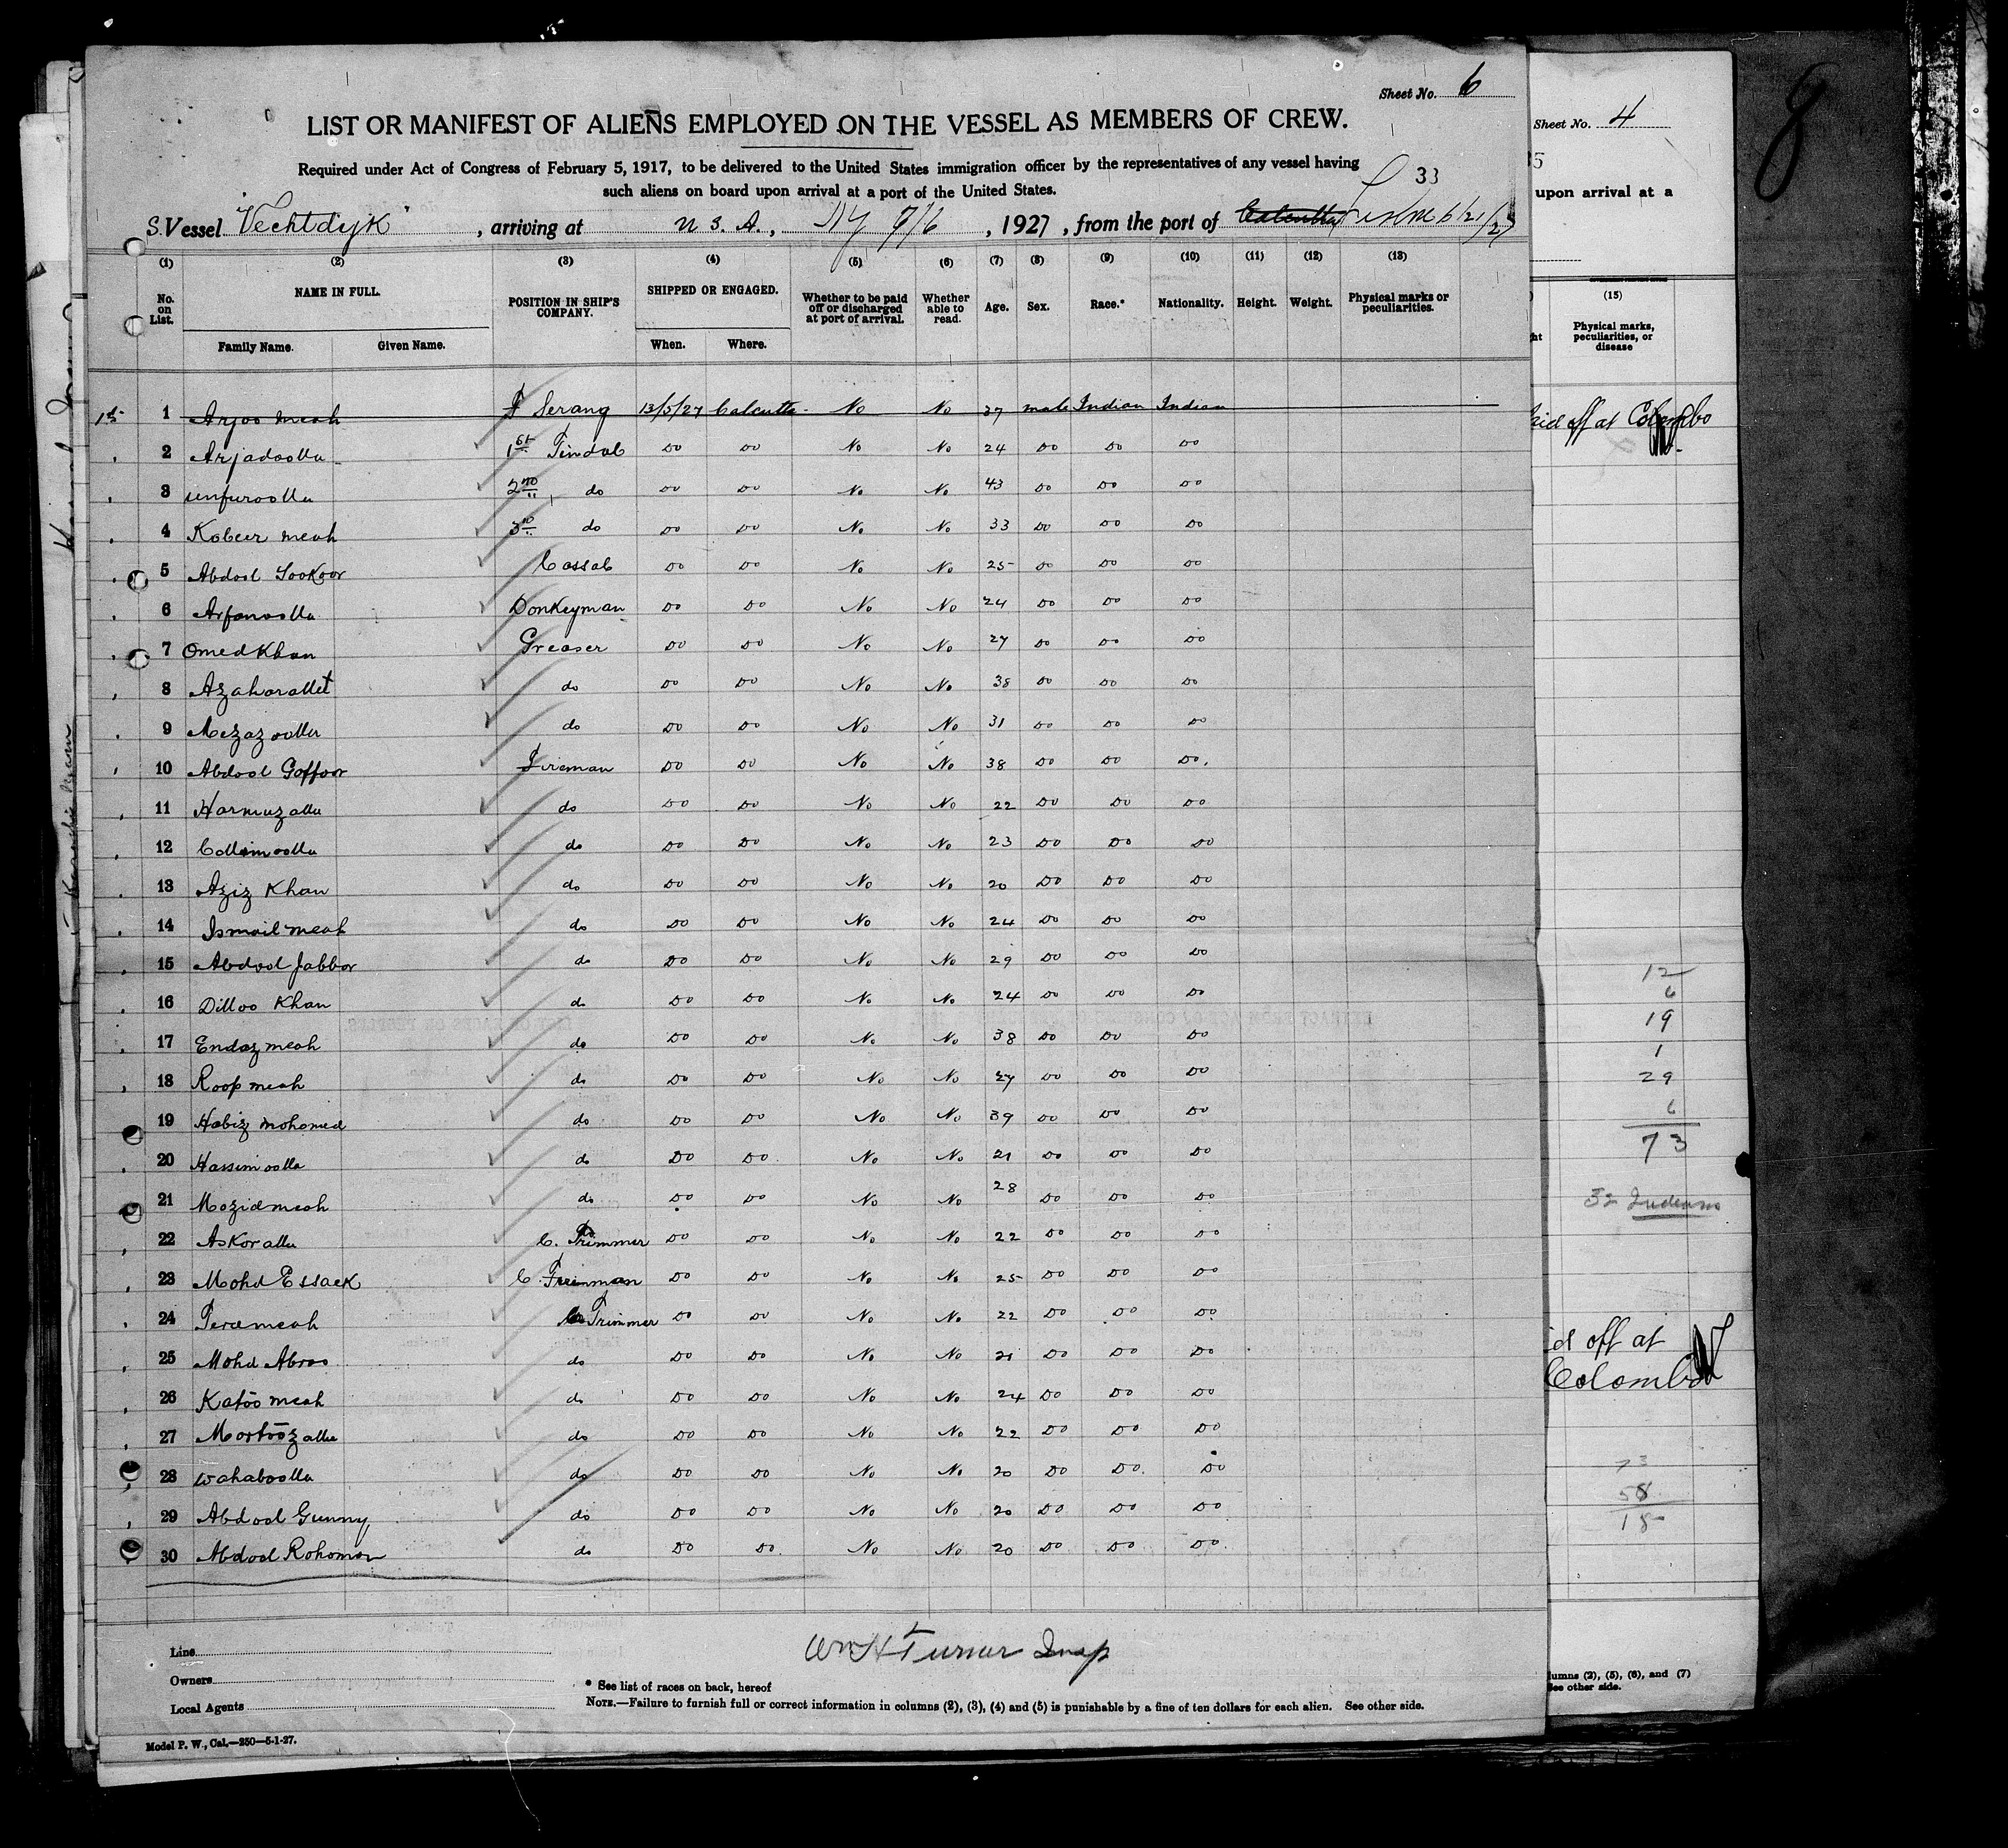 Sheet No. 6
LIST OR MANIFEST OF ALIENS EMPLOYED ON THE VESSEL AS MEMBERS OF CREW.
Required under Act of Congress of February 5, 1917, to be delivered to the United States immigration officer by the representatives of any vessel having
such aliens on board upon arrival at a port of the United States.
33
S. Vessel "Vechtdyk", arriving at U. S. A., NY 7/6, 1927, from the port of Calcutta 6/21/27
(1) (2) (3) (4) (5) (6) (7) (8) (9) (10) (11) (12) (13)
No. on List. NAME IN FULL. POSITION IN SHIP'S COMPANY. SHIPPED OR ENGAGED. Whether to be paid off or discharged at port of arrival. Whether able to read. Age. Sex. Race.* Nationality. Height. Weight. Physical marks or peculiarities.
Family Name. Given Name. When. Where.
1st 1 Arjoo meah Serang 13/5/27 Calcutta No No 37 male Indian Indian
2 Arjadoolla 1st Tindal Do Do No No 24 Do Do Do
3 unfuroolla 2nd do Do Do No No 43 Do Do Do
4 Kobeer meah 3rd do Do Do No No 33 Do Do Do
5 Abdool Sookoor Cassab Do Do No No 25 Do Do Do
6 Arfanoolla Donkeyman Do Do No No 24 Do Do Do
7 Omed Khan Greaser Do Do No No 27 Do Do Do
8 do Do Do No No 38 Do Do Do
9 Mezazoolla do Do Do No No 31 Do Do Do
10 Abdool Goffoor Fireman Do Do No No 38 Do Do Do.
11 Harmuzalla do Do Do No No 22 Do Do Do
12 Collimoolla do Do Do No No 23 Do Do Do
13 Aziz Khan do Do Do No No 20 Do Do Do
14 Ismail meah do Do Do No No 24 Do Do Do
15 Abdool Jabbor do Do Do No No 29 Do Do Do
16 Dilloo Khan do Do Do No No 24 Do Do Do
17 Endaz meah do Do Do No No 38 Do Do Do
18 Roop meah do Do Do No No 27 Do Do Do
19 Habiz mohomed do Do Do No No 39 Do Do Do
20 Hassimoolla do Do Do No No 21 Do Do Do
21 Mozid meah do Do Do No No 28 Do Do Do
22 Askoralla C. Trimmer Do Do No No 22 Do Do Do
23 Mohd Essack C. Do Do No No 25 Do Do Do
24 Peremeah Trimmer Do Do No No 22 Do Do Do
25 Mohd Abroo do Do Do No No 21 Do Do Do
26 Katoo meah do Do Do No No 24 Do Do Do
27 Mortoozalla do Do Do No No 22 Do Do Do
28 wahaboolla do Do Do No No 20 Do Do Do
29 Abdool Gunny do Do Do No No 20 Do Do Do
30 Abdool Rohoman do Do Do No No 20 Do Do Do
Wm H Turner Insp
Line
Owners
Local Agents
* See list of races on back, hereof
NOTE.—Failure to furnish full or correct information in columns (2), (3), (4) and (5) is punishable by a fine of ten dollars for each alien. See other side.
Model P. W., Cal.—250—5-1-27.
Sheet No. 4
5
upon arrival at a
(15)
ht
Physical marks, peculiarities, or disease
aid off at Colombo
12
6
19
1
29
6
73
32 Indians
id off at
Colombo
73
58
15
lumns (2), (5), (6), and (7)
See other side.
8